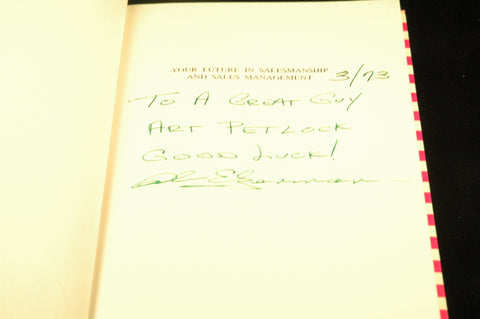 YOUR FUTURE IN SALESMANSHIP
AND SALES MANAGEMENT
3/73
TO A GREAT GUY
ART PETLOCK
GOOD LUCK!